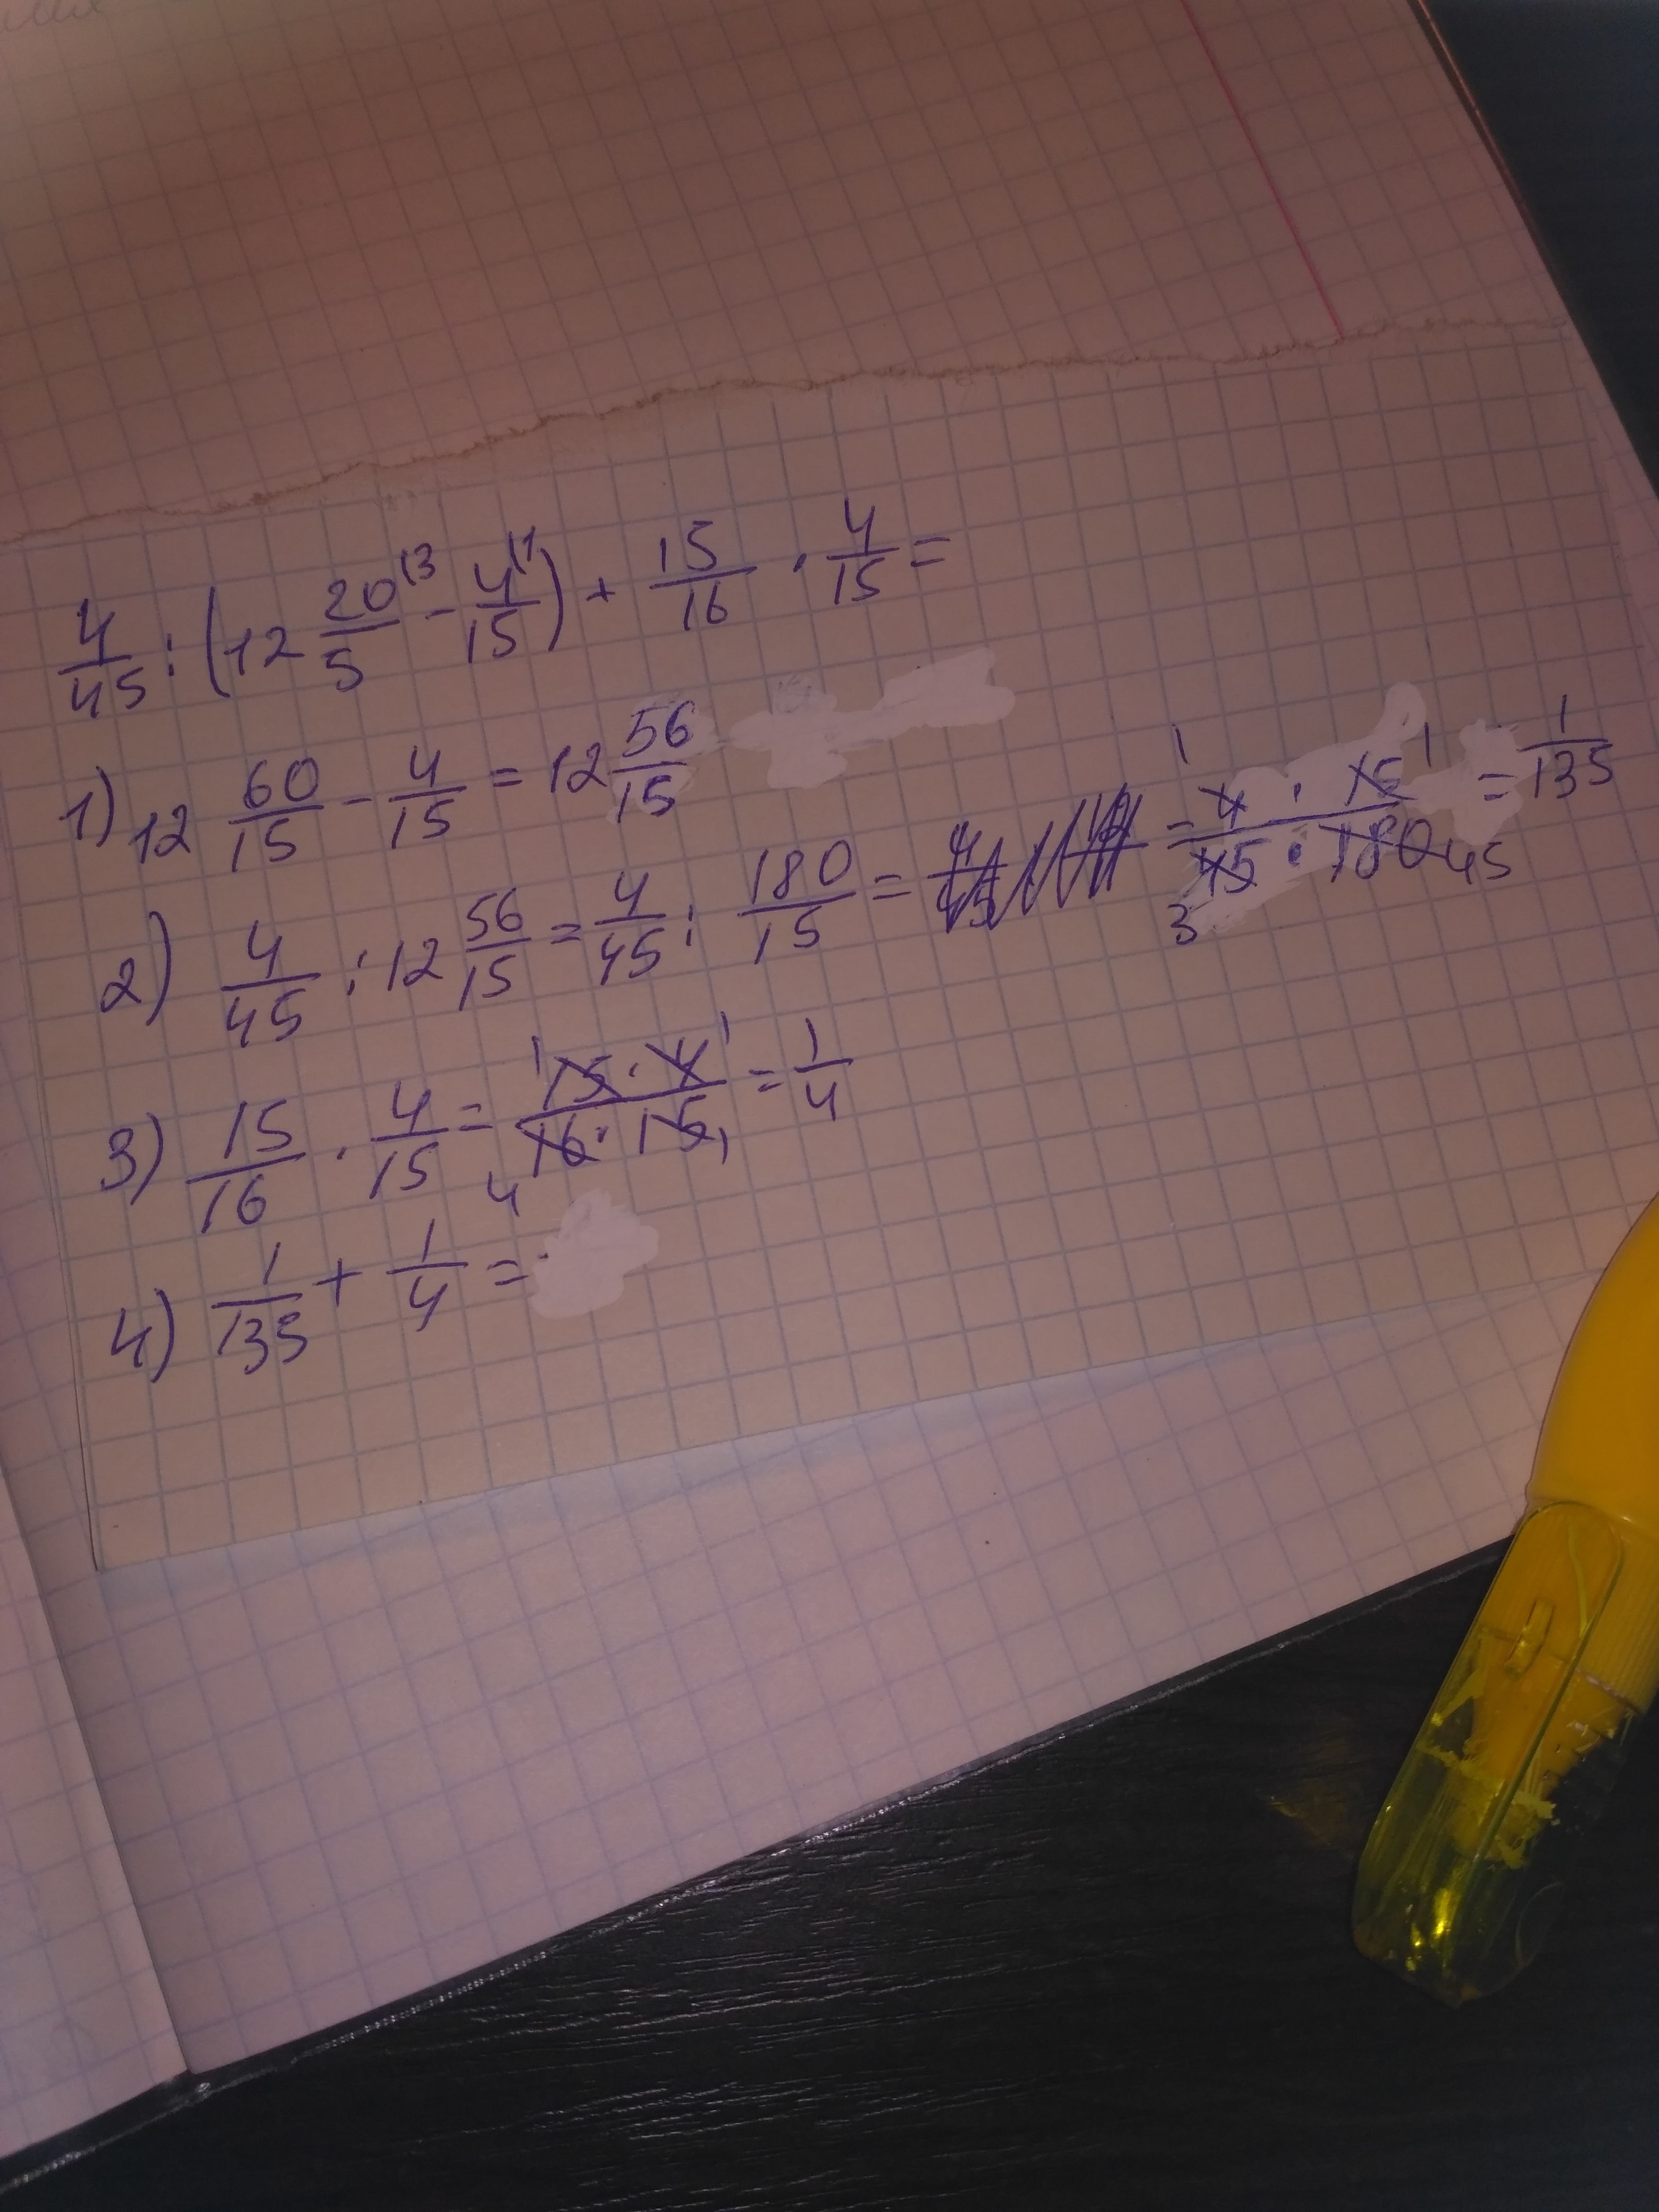 4/45 : (12 20/5 (3 - 4/15 (1) + 15/16 · 4/15 =
1) 12 60/15 - 4/15 = 12 56/15
2) 4/45 : 12 56/15 = 4/45 : 180/15 = = 1 4 · 15 1 / 3 45 · 180 45 = 1/135
3) 15/16 · 4/15 = 1 15 · 4 1 / 4 16 · 15 1 = 1/4
4) 1/135 + 1/4 =